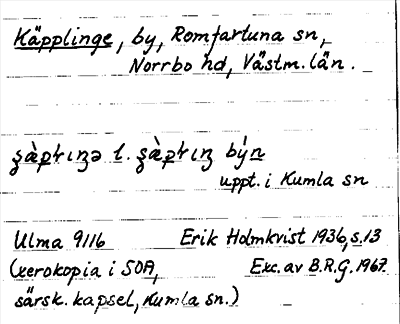 Käpplinge, by, Romfartuna sn,
Norrbo hd, Västm. län.
uppt. i Kumla sn
Ulma 9116 Erik Holmkvist 1936, s. 13
(xerokopia i SOA, Exc. av B.R.G. 1967.
särsk. kapsel, Kumla sn.)